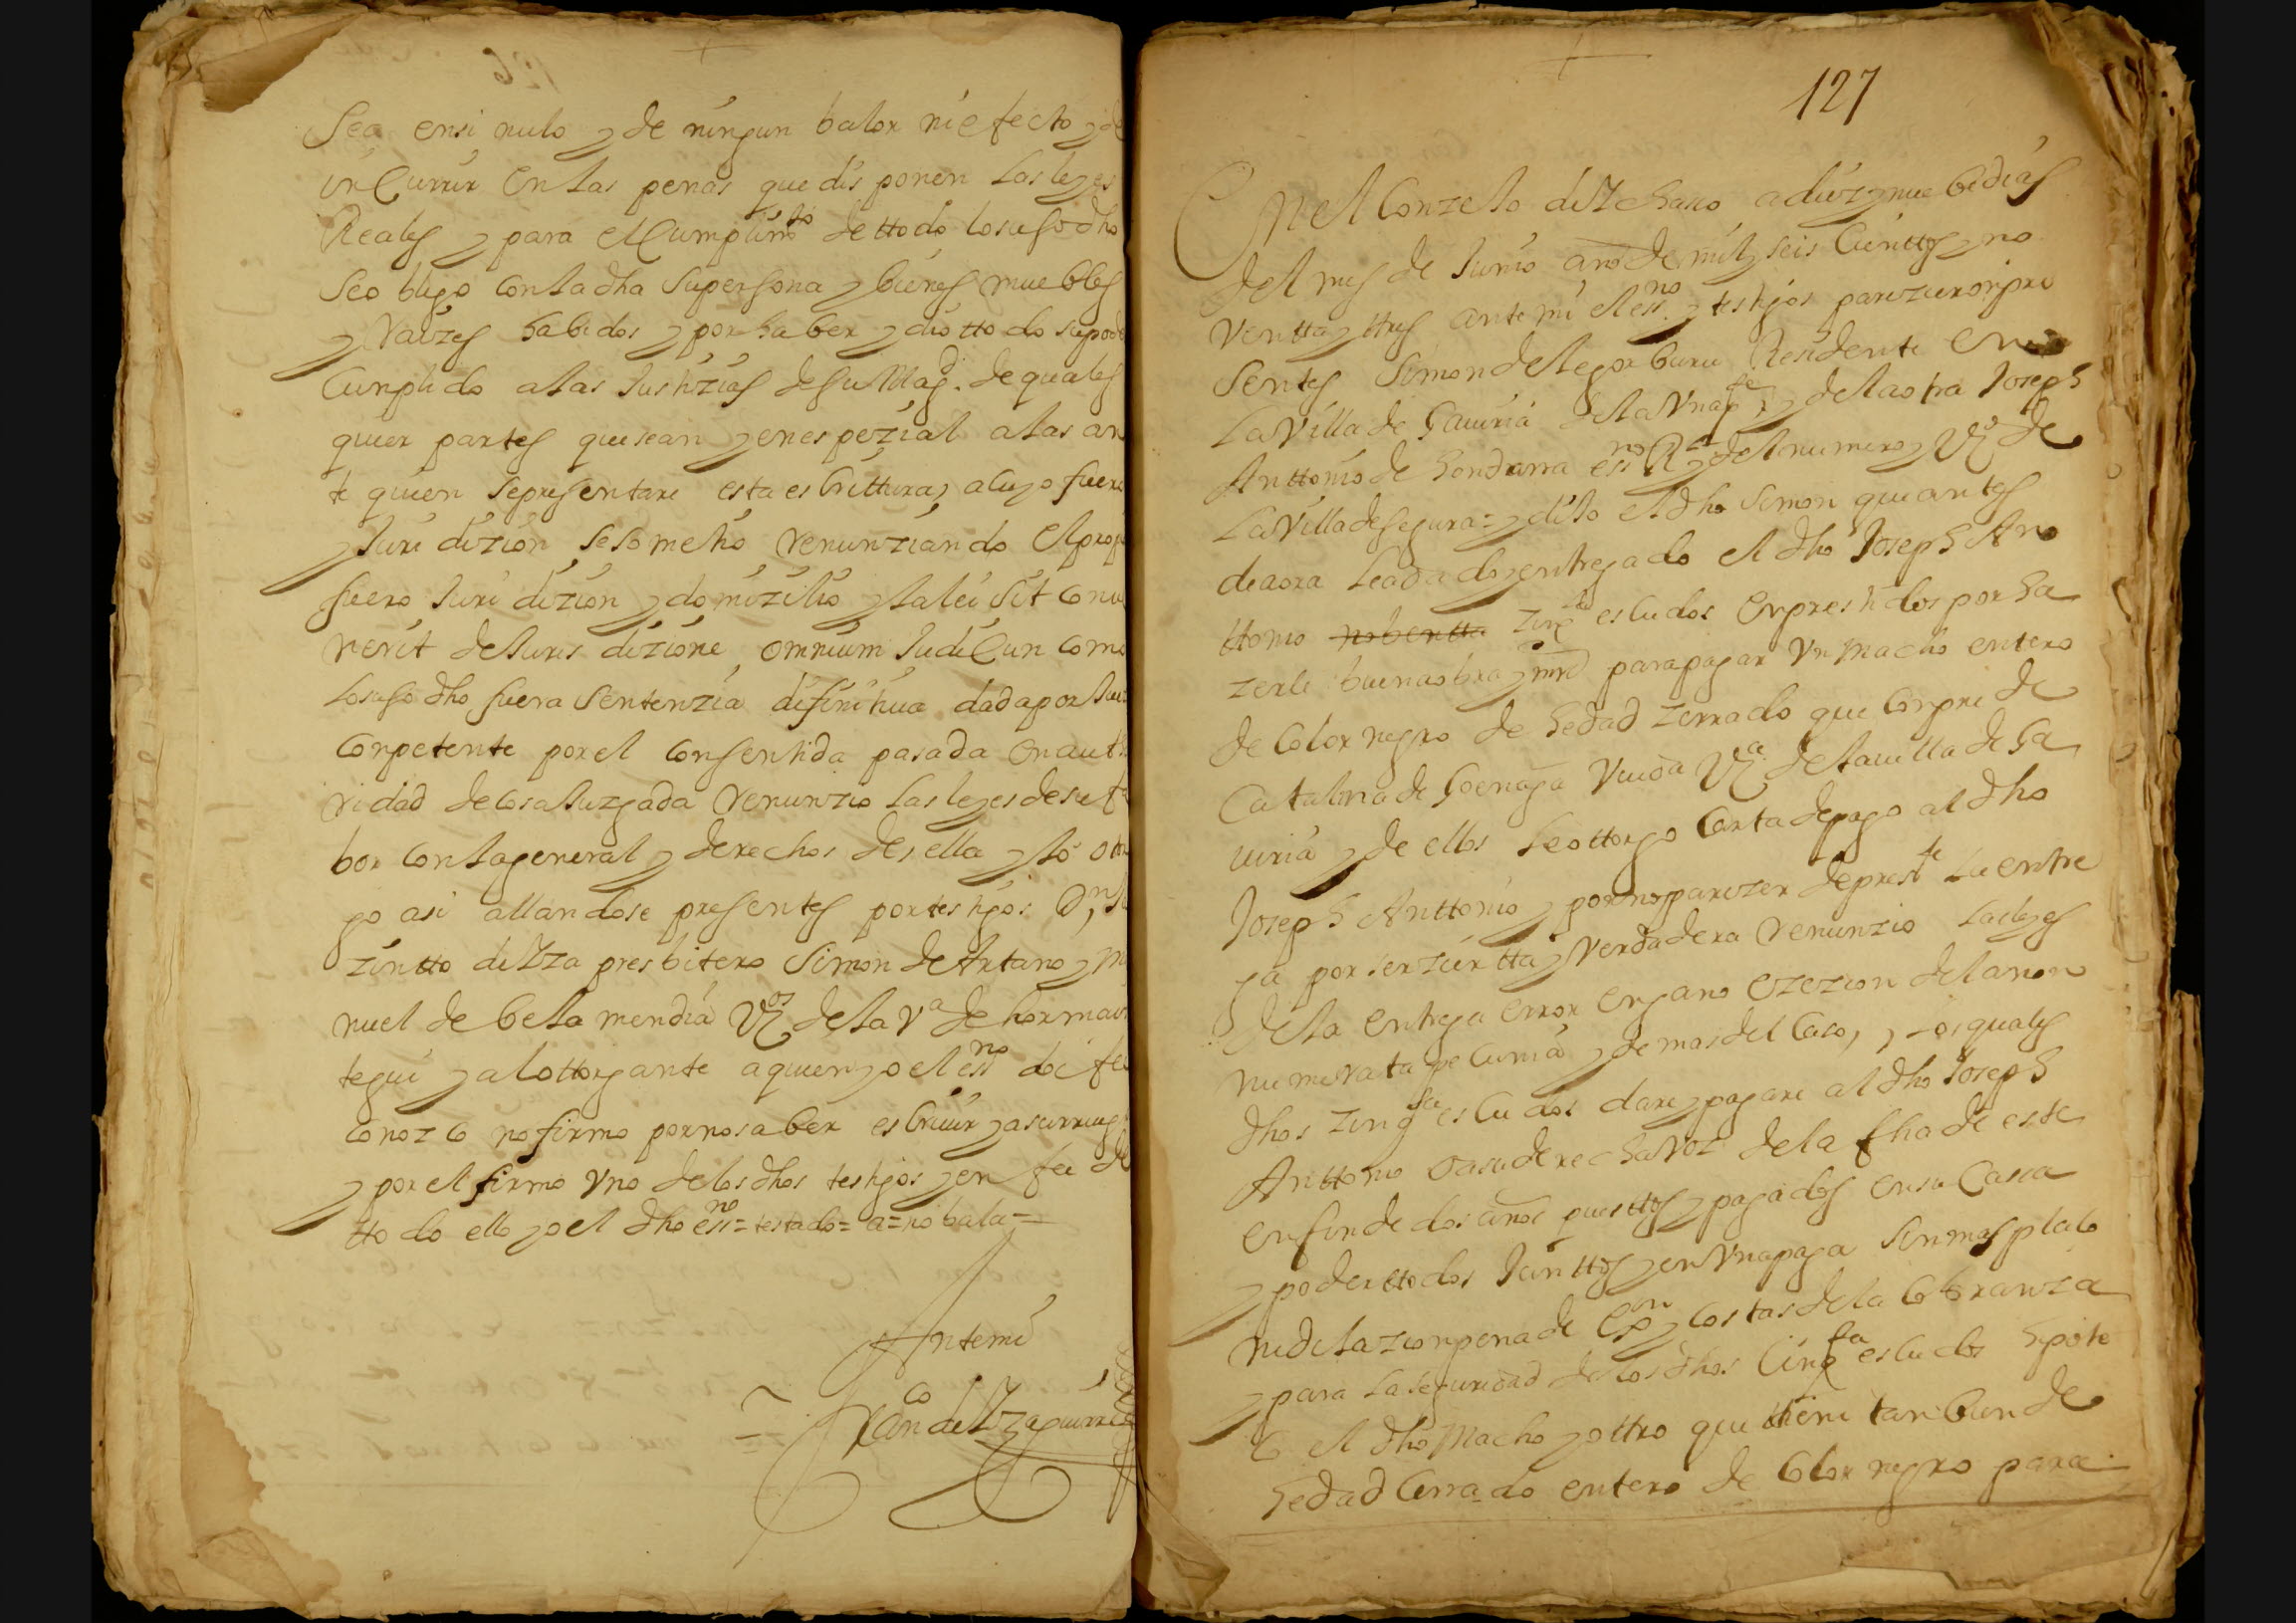 Sea ensi nulo y de ningun balor ni efecto y de
inCurrir En las penas que dis ponen las leyes
Reales y para el Cumplimto de ttodo lo suso dho
se obligo Con la dha su persona y bienes muebles
y raizes habidos y por haber y dio ttodo su pode
Cunplido a las Justizias de su Magd. de quales
quier partes que sean y en espezial a las an
te quien se presentare esta esCrittura, a cuyo fuero
y Juri dizion se sometio renunziando el prop
fuero Juri dizion y domizilio y la lei sit Conue
nerit de Juris dizione omnium Judicun como
lo suso dho fuera sentenzia difinitiua dada por Jue
Conpetente por el Consentida pasada en autto
ridad de cosa Juzgada renunzio las leyes de su fa
bor Con la general y derechos de ella y lo otor
go asi allandose presentes por testigos Dn Ja
zintto de Yza presbitero Simon de Artano y M
nuel de bela mendia Vzos de la Va de hormaiz
tegui y al ottorgante a quien yo el essno doi fee
Conozco no firmo por no saber esCriuir y a su rruego
y por el firmo Vno de los dhos testigos y en fee de
tto do ello yo el dho essno = testado = a = no bala =
Ante mi
Franco de Yzaguirre
127
En el Conzejo de Ychaso a diez y nuebe dias
del mes de Junio año de mil y seis Cienttos y no
Ventta y ttres ante mi el essno y testigos parezieron pre
sentes Simon de Legorburu Residente en
la Villa de Gauiria de la Vna pte y de la otra Joseph
Anttonio de hondarra essno Rl y del numero y Vzo de
la Villa de Segura = y dixo el dho Simon que antes
de aora le a dado y entregado el dho Joseph An
ttonio nobentta zinqta escudos Enprestidos por ha
zerle buena obra y mrd para pagar Vn Macho entero
de Color negro de hedad zerrado que Conpre de
Catalina de Goenaga Viuda Vza de la uilla de Ga
uiria y de ellos le ottorgo Carta de pago al dho
Joseph Anttonio y por no parezer de preste la entre
ga por ser zierta y Verdadera renunzio las leyes
de la entrega error engano ezezion de la non
numerata pecunia y demas del Caso, y los quales
dhos zinqta escudos dare y pagare al dho Joseph
Anttonio o a su derecha voz de la fha de este
en fin de dos años puesttos y pagados en su Casa
y poder ttodos Junttos y en Vna paga sin mas plaso
ni dilazion pena de exon y costas de la Cobranza
y para la seguridad de los dhos Cinqta escudos hipote
Co el dho Macho y ottro que ttiene tanbien de
hedad Cerrado entero de Color negro para